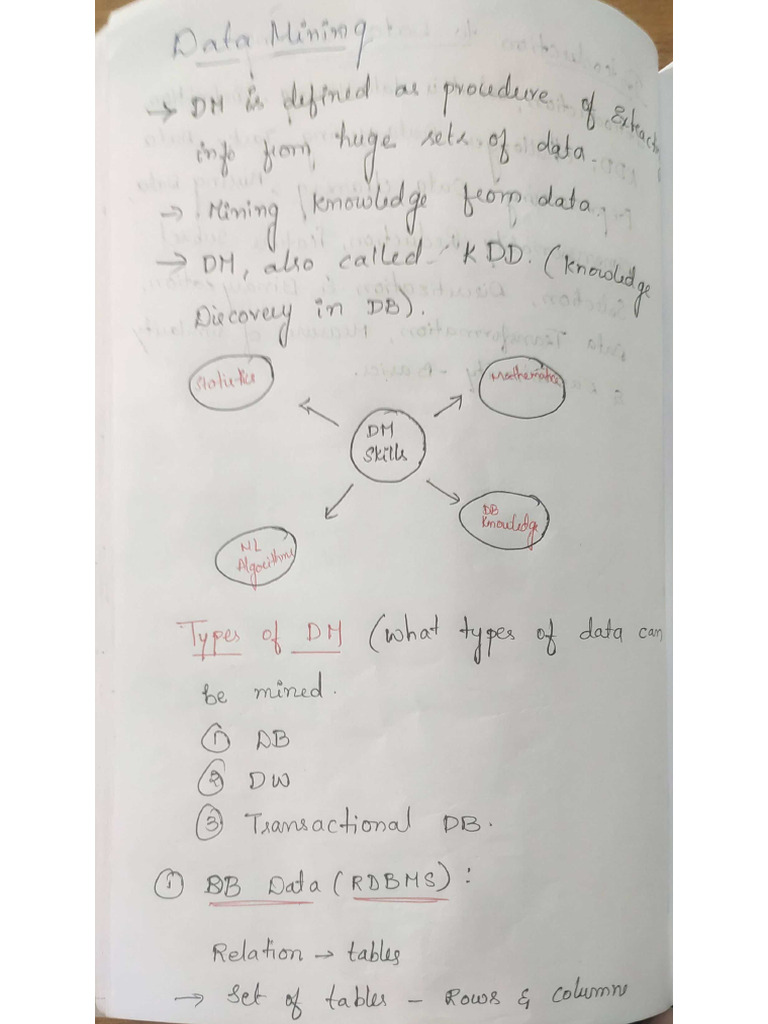 Data Mining
→ DM is defined as proudure of Extractn
info from huge sets of data.
→ Mining knowledge from data.
→ DM, also called KDD. (Knowledge
Discovery in DB).
Statistics
Mathematics
DM
Skills
ML
Algorithms
DB
Knowledge
Types of DM (what types of data can
be mined.
① DB
② DW
③ Transactional DB.
① DB Data (RDBMS) :
Relation → tables
→ Set of tables - Rows & columns